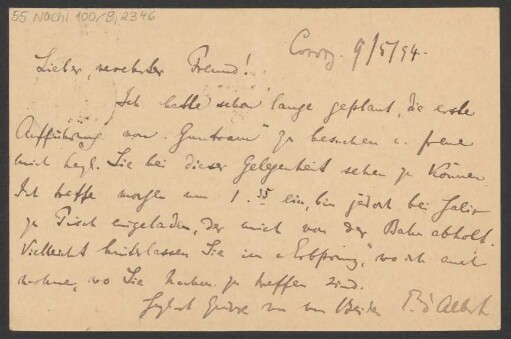 55 Nachl 100/B,2346
Coswig 9/5/94.
Lieber, verehrter Freund!
Ich hatte schon lange geplant, die erste
Aufführung von "Guntram" zu besuchen u. freue
mich herzl. Sie bei dieser Gelegenheit sehen zu können.
Ich treffe morgen um 1.35 ein, bin jedoch bei
zu Tisch eingeladen, der mich von der Bahn abholt.
Vielleicht hinterlassen Sie im "Erbprinz", wo ich auch
wohne, wo Sie nachm. zu treffen sind.
Herzlichst Grüsse von uns Beiden E. d'Albert